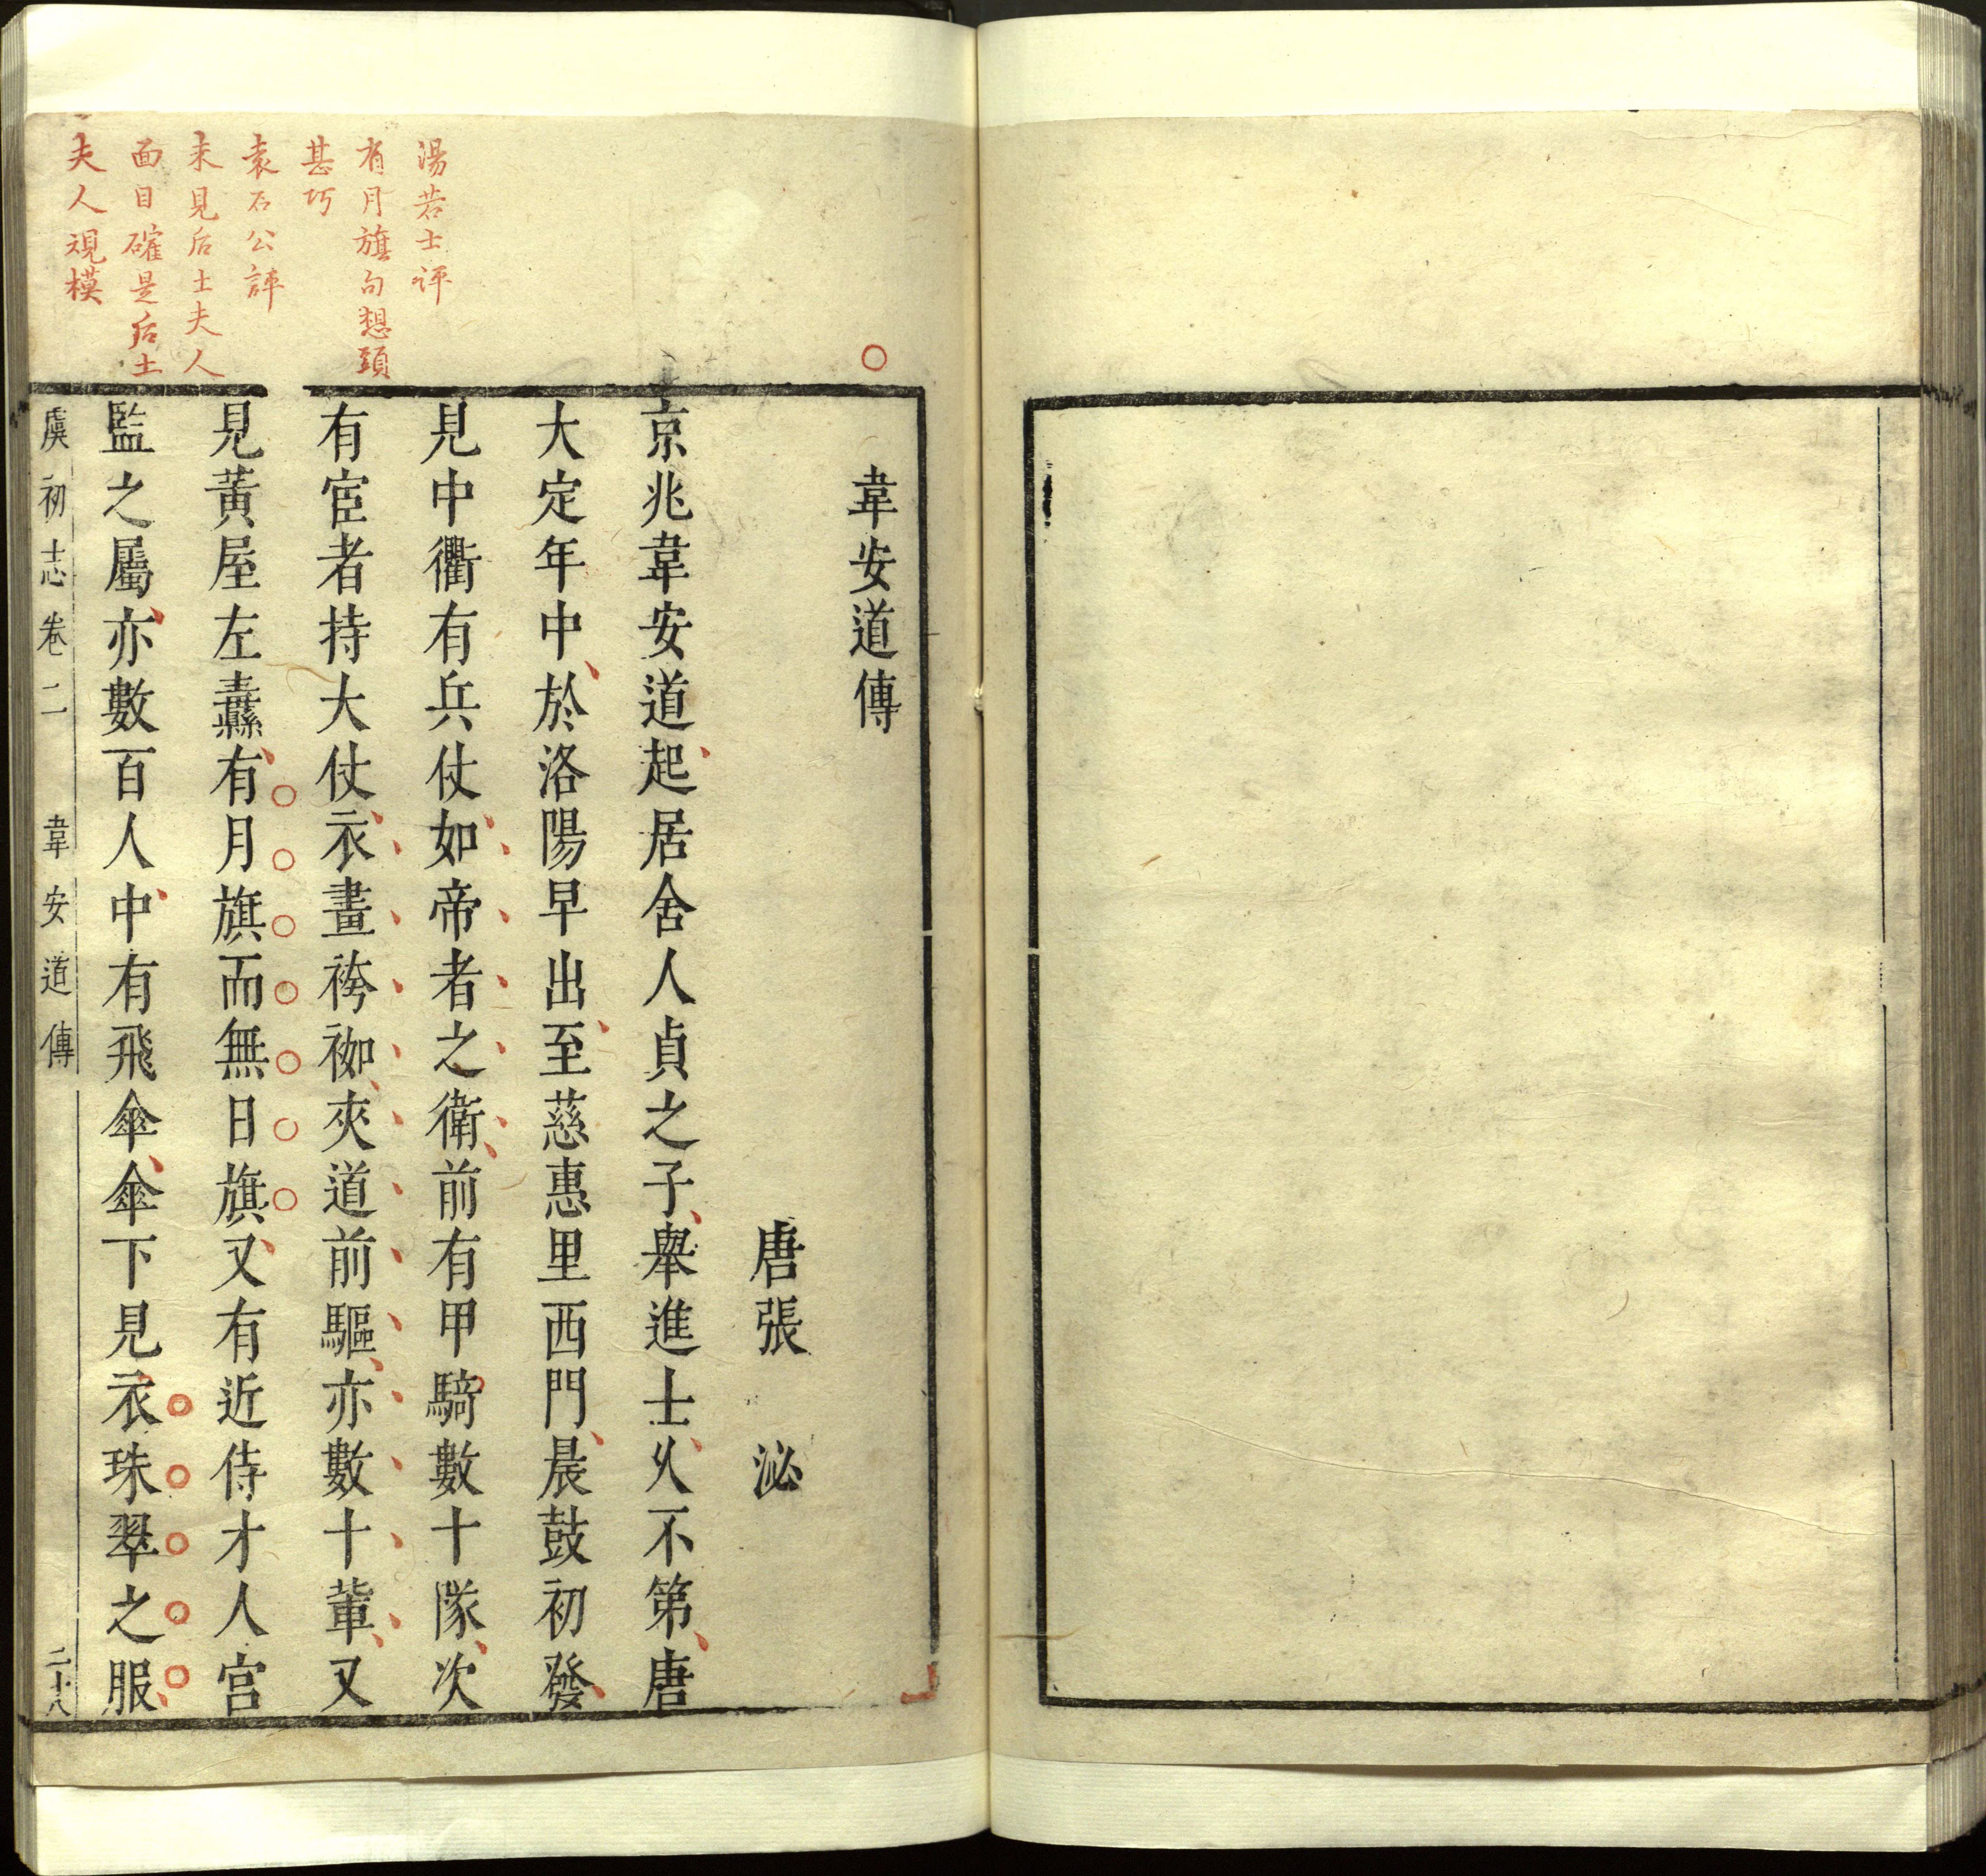 湯若士評
有月旗句想頭
甚巧
袁石公評
未見后土夫人
面目確是后土
夫人規模
韋安道傳
唐張　泌
京兆韋安道起居舍人貞之子舉進士乆不第唐
大定年中於洛陽早出至慈惠里西門晨鼓初發
見中衢有兵仗如帝者之衛前有甲騎數十隊次
有宦者持大仗衣畫袴袽夾道前驅亦數十輩又
見黃屋左纛有月旗而無日旗又有近侍才人宮
監之屬亦數百人中有飛傘傘下見衣珠翠之服
虞初志卷二　韋安道傳　二十八